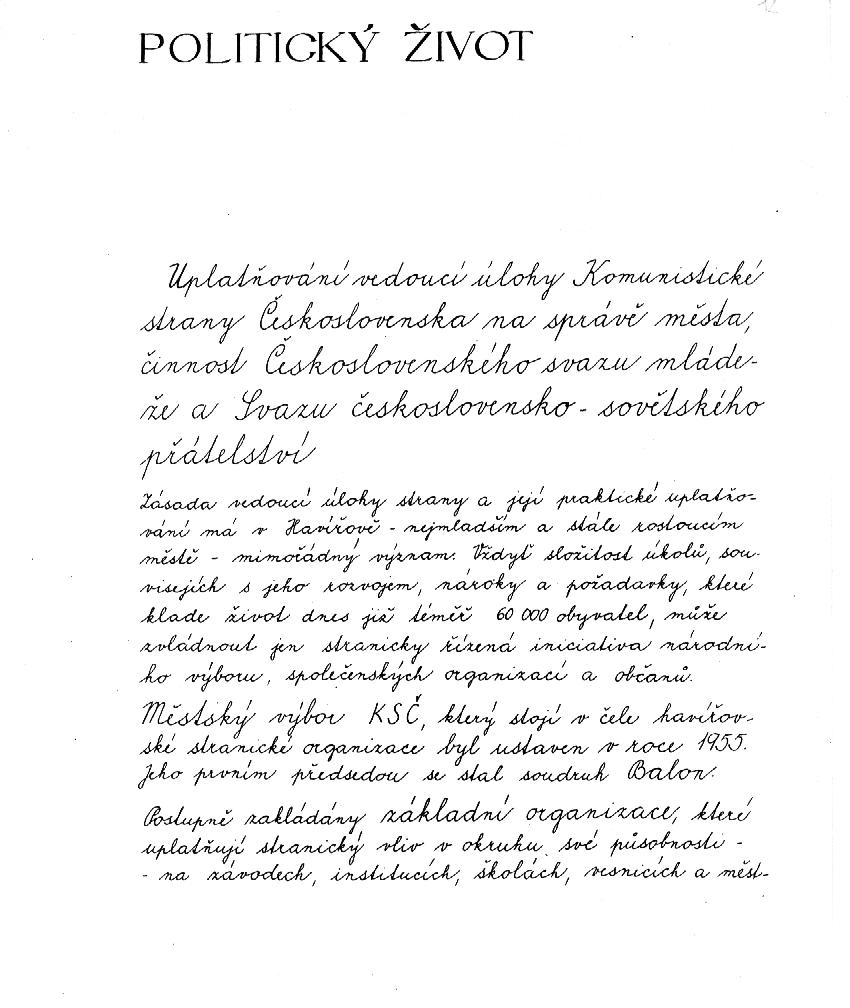 12
POLITICKÝ ŽIVOT
Uplatňování vedoucí úlohy Komunistické
strany Československa na správě města,
činnost Československého svazu mláde-
že a Svazu československo - sovětského
přátelství
Zásada vedoucí úlohy strany a její praktické uplatňo-
vání má v Havířově - nejmladším a stále rostoucím
městě - mimořádný význam. Vždyť složitost úkolů, sou-
visejících s jeho rozvojem, nároky a požadavky, které
klade život dnes již téměř 60 000 obyvatel, může
zvládnout jen stranicky řízená iniciativa národní-
ho výboru, společenských organizací a občanů.
Městský výbor KSČ, který stojí v čele havířov-
ské stranické organizace byl ustaven v roce 1955.
Jeho prvním předsedou se stal soudruh Balon.
Postupně zakládány základní organizace, které
uplatňují stranický vliv v okruhu své působnosti -
- na závodech, institucích, školách, vesnicích a měst-